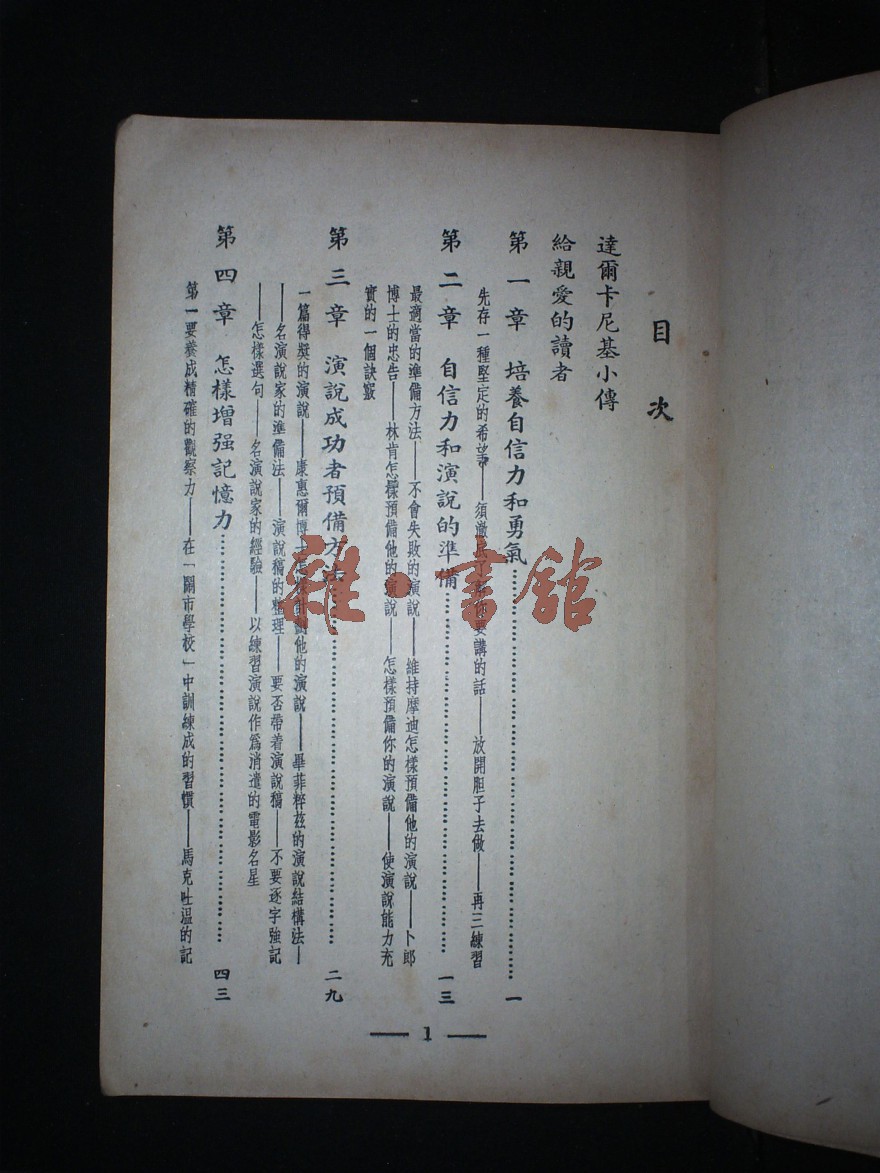 目次
達爾卡尼基小傳
給親愛的讀者
第一章 培養自信力和勇氣…………一
先存一種堅定的希望——須澈底了解你要講的話——放開胆子去做——再三練習
第二章 自信力和演說的準備…………一三
最適當的準備方法——不會失敗的演說——維持摩迪怎樣預備他的演說——卜郎
博士的忠告——林肯怎樣預備他的演說——怎樣預備你的演說——使演說能力充
實的一個訣竅
第三章 演說成功者預備方法…………二九
一篇得獎的演說——康惠爾博士怎樣計劃他的演說——畢菲粹茲的演說結構法—
—名演說家的準備法——演說稿的整理——要否帶着演說稿——不要逐字強記
——怎樣選句——名演說家的經驗——以練習演說作爲消遣的電影名星
第四章 怎樣增强記憶力…………四三
第一要養成精確的觀察力——在「鬧市學校」中訓練成的習慣——馬克吐溫的記
— 1 —
雜·書館